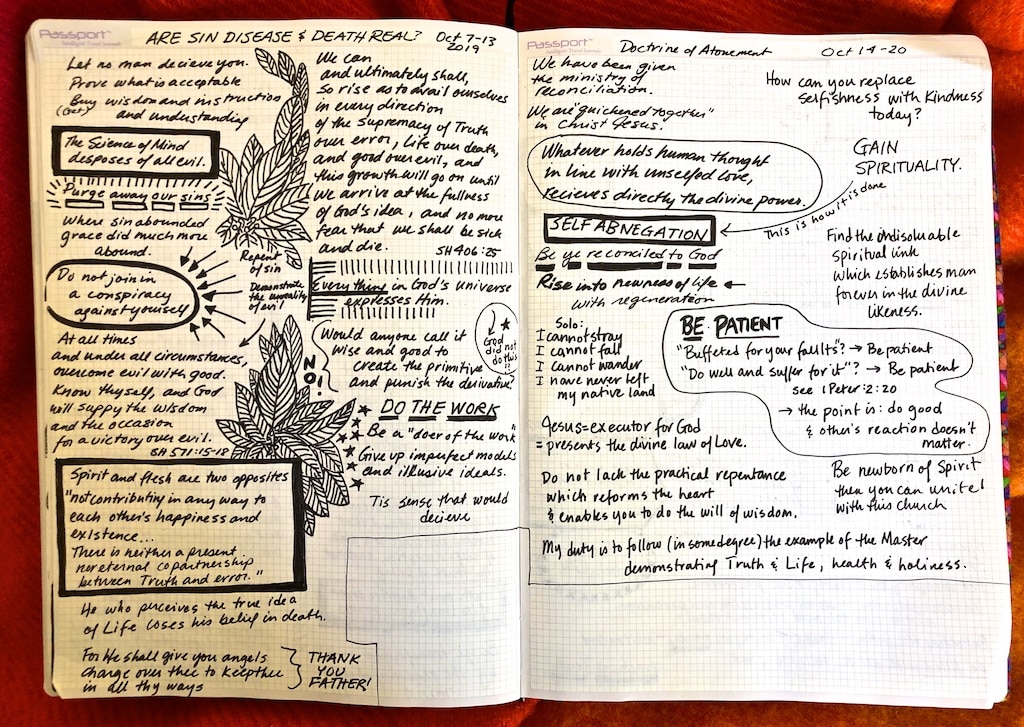 Passport™
Intelligent Travel Journals
ARE SIN DISEASE & DEATH REAL?
Oct 7-13
2019
Let no man decieve you.
Prove what is acceptable
Buy wisdom and instruction
(Get)
and understanding
The Science of Mind
desposes of all evil.
Purge away our sins
Where sin abounded
grace did much more
abound.
Repent
of sin
Demonstrate
the unreality
of evil
Do not join in
a conspiracy
against yourself
At all times
and under all circumstances,
overcome evil with good.
Know thyself, and God
will suppy the wisdom
and the occasion
for a victory over evil.
SH 571:15-18
Spirit and flesh are two opposites
"not contributing in any way to
each other's happiness and
existence...
There is neither a present
nor eternal copartnership
between Truth and error."
He who perceives the true idea
of Life loses his belief in death.
For He shall give you angels
charge over thee to keep thee
in all thy ways
THANK
YOU
FATHER!
We can
and ultimately shall,
So rise as to avail ourselves
in every direction
of the supremacy of Truth
over error, Life over death,
and good over evil, and
this growth will go on until
we arrive at the fullness
of God's idea, and no more
fear that we shall be sick
and die.
SH 406:25
Everything in God's universe
expresses Him.
Would anyone call it
wise and good to
create the primitive
and punish the derivative?
NO!
God
did not
do this
!!
DO THE WORK
Be a "doer of the work"
Give up imperfect models
and illusive ideals.
Tis sense that would
decieve
Passport™
Intelligent Travel Journals
Doctrine of Atonement
Oct 14-20
We have been given
the ministry of
reconciliation.
We are "quickened together"
in Christ Jesus.
Whatever holds human thought
in line with unselfed love,
recieves directly the divine power.
SELF ABNEGATION
Be ye reconciled to God
Rise into newness of life
with regeneration
How can you replace
selfishness with Kindness
today?
GAIN
SPIRITUALITY.
This is how it is done
Find the indissoluable
spiritual link
which establishes man
forever in the divine
likeness.
Solo:
I cannot stray
I cannot fall
I cannot wander
I have never left
my native land
BE PATIENT
"Buffeted for your faults"? → Be patient
"Do well and suffer for it"? → Be patient
see 1 Peter: 2:20
→ the point is: do good
& other's reaction doesn't
matter.
Jesus = executor for God
= presents the divine law of Love.
Do not lack the practical repentance
which reforms the heart
& enables you to do the will of wisdom.
Be newborn of Spirit
then you can unite
with this church
My duty is to follow (in some degree) the example of the Master
demonstrating Truth & Life, health & holiness.